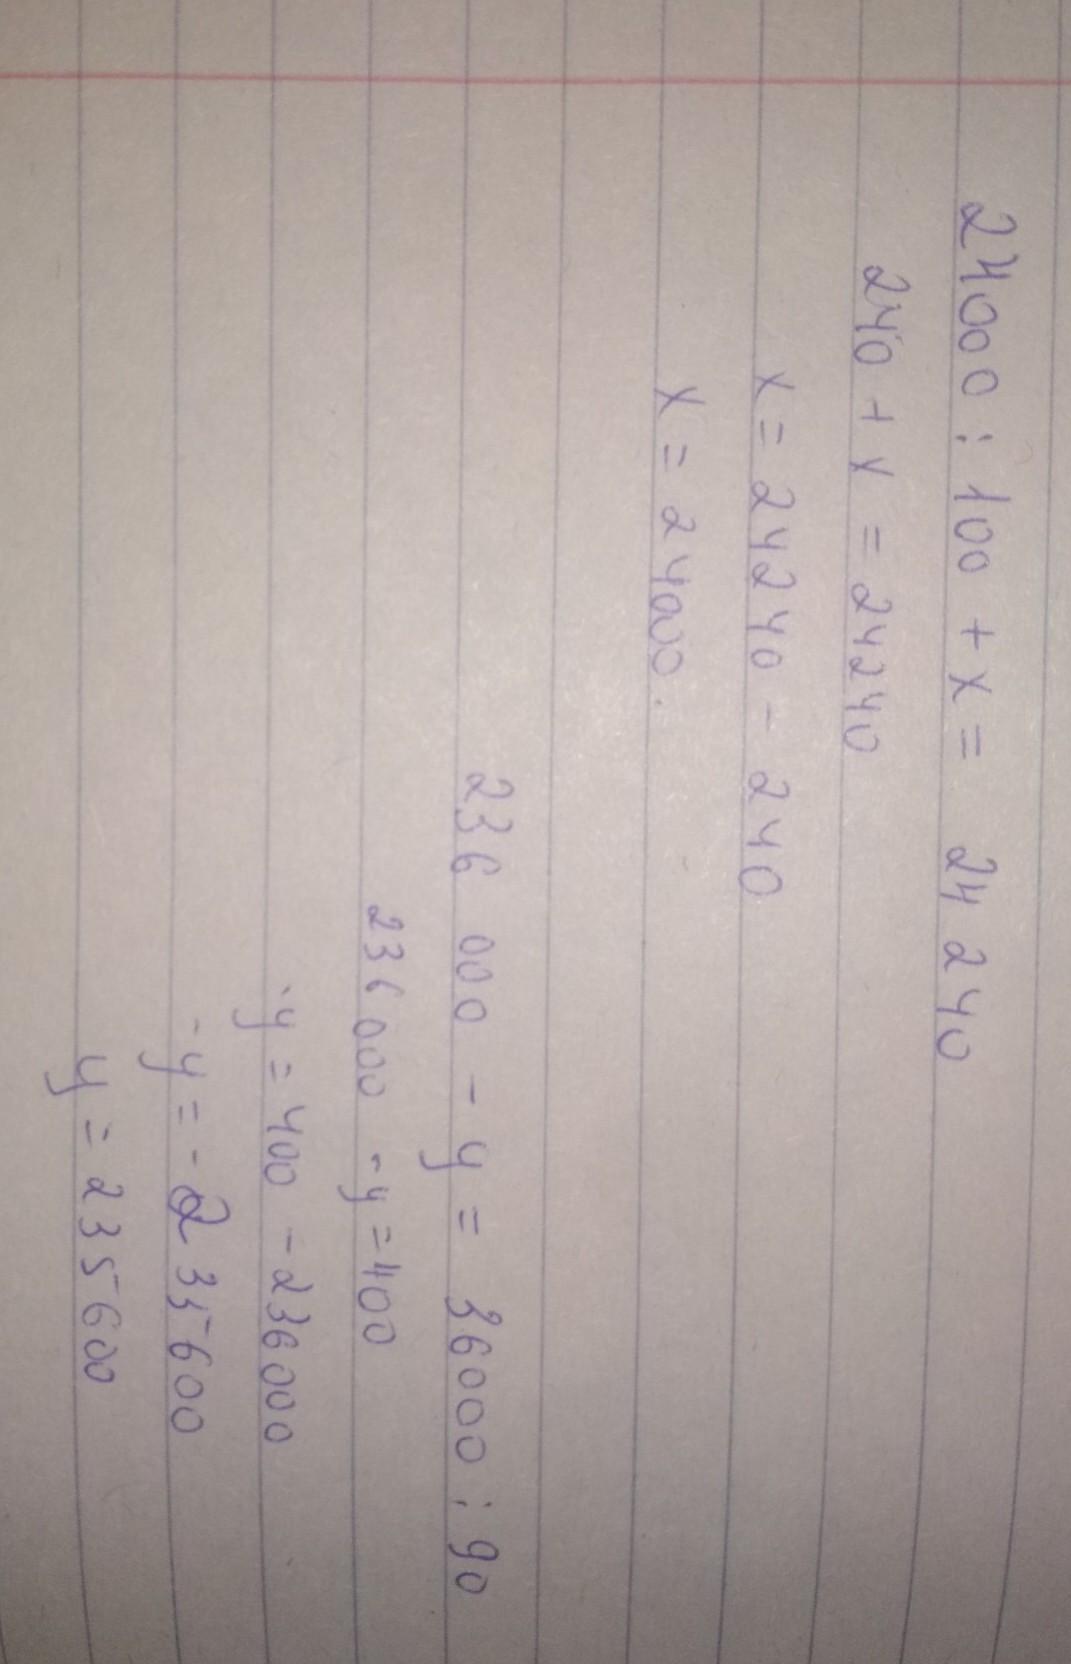 24000 : 100 + x = 24 240
240 + x = 24240
x = 24240 - 240
x = 24000.
236 000 - y = 36000 : 90
236000 - y = 400
-y = 400 - 236000
-y = -235600
y = 235600